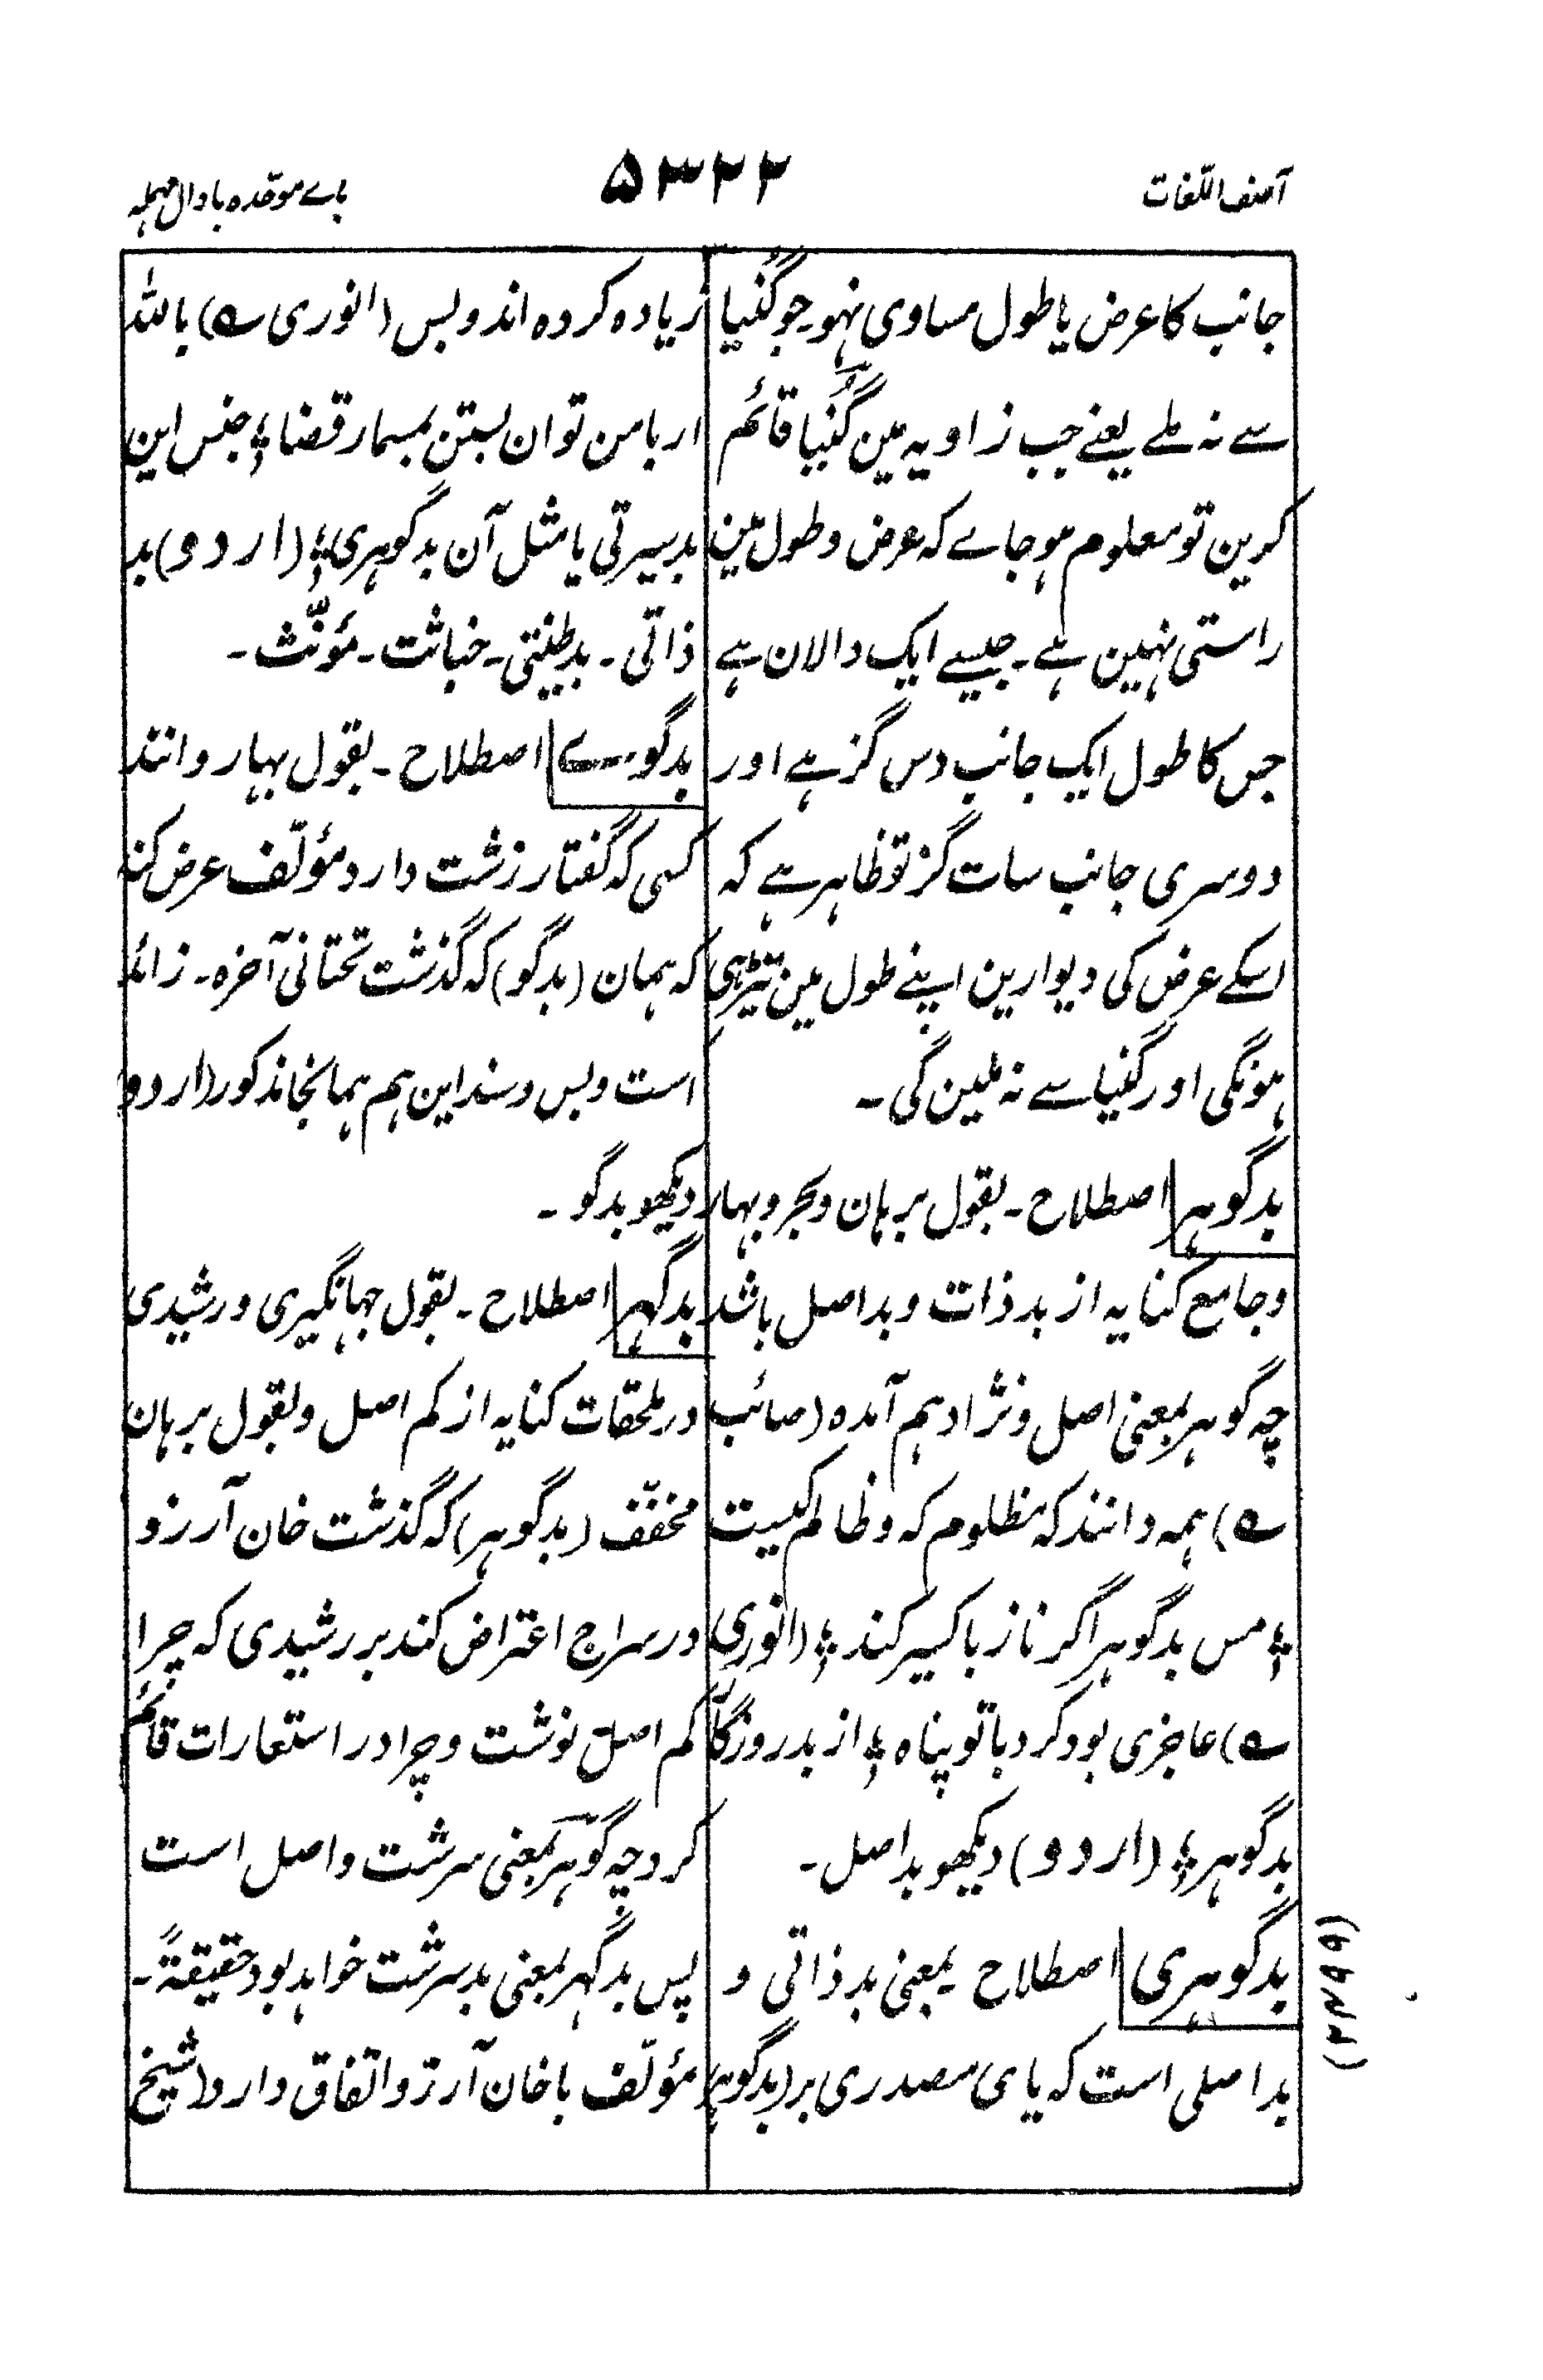 آصف اللغات
۵۳۲۲
بائے موحّدہ با دال مہملہ
جانب کا عرض یا طول مساوی نہو۔ جو گُنیا
سے نہ ملے یعنے جب زاویہ مین گُنیا قائم
کرین تو معلوم ہو جاے کہ عرض و طول مین
راستی نہین ہے۔ جیسے ایک دالان ہے
جس کا طول ایک جانب دس گز ہے اور
دوسری جانب سات گز تو ظاہر ہے کہ
اسکے عرض کی دیوارین اپنے طول مین تیڑہی
ہونگی اور گنیا سے نہ ملین گی۔
بدگوہر اصطلاح۔ بقول برہان و بحر و بہار
و جامع کنایہ از بد ذات و بد اصل باشد
چہ گوہر بمعنی اصل و نژاد ہم آمدہ (صائب
ے) ہمہ دانند کہ مظلوم کہ و ظالم کیست
؛ مس بدگوہر اگر ناز باکسیر کند ؛ (انوری
ے) عاجزی بود کرد با تو پناہ ؛ از بد روزگا
بدگوہر ؛ (اردو) دیکھو بد اصل۔
بدگوہری اصطلاح۔ بمعنی بد ذاتی و
بد اصلی است کہ یای مصدری بر (بدگوہر
(۲۴۹۹)
زیادہ کردہ اند و بس (انوری ے) باللہ
ار با من توان بستن بمسمار قضا ؛ جنس این
بد سیرتی یا مثل آن بدگوہری ؛ (اردو) بد
ذاتی۔ بد طینتی۔ خباثت۔ مؤنّث۔
بدگوے اصطلاح۔ بقول بہار و انند
کسی کہ گفتار زشت دارد مؤلّف عرض کند
کہ ہمان (بدگو) کہ گذشت تحتانی آخرہ۔ زائد
است و بس و سند این ہم ہمانجا مذکور (اردو)
دیکھو بدگو۔
بدگہر اصطلاح۔ بقول جہانگیری و رشیدی
در ملحقات کنایہ از کم اصل و بقول برہان
مخفّف (بدگوہر) کہ گذشت خان آرزو
در سراج اعتراض کند بر رشیدی کہ چرا
کم اصل نوشت و چرا در استعارات قائم
کرد چہ گوہر بمعنی سرشت و اصل است
پس بدگہر بمعنی بد سرشت خواہد بود حقیقۃً۔
مؤلّف با خان آرزو اتّفاق دارد (شیخ